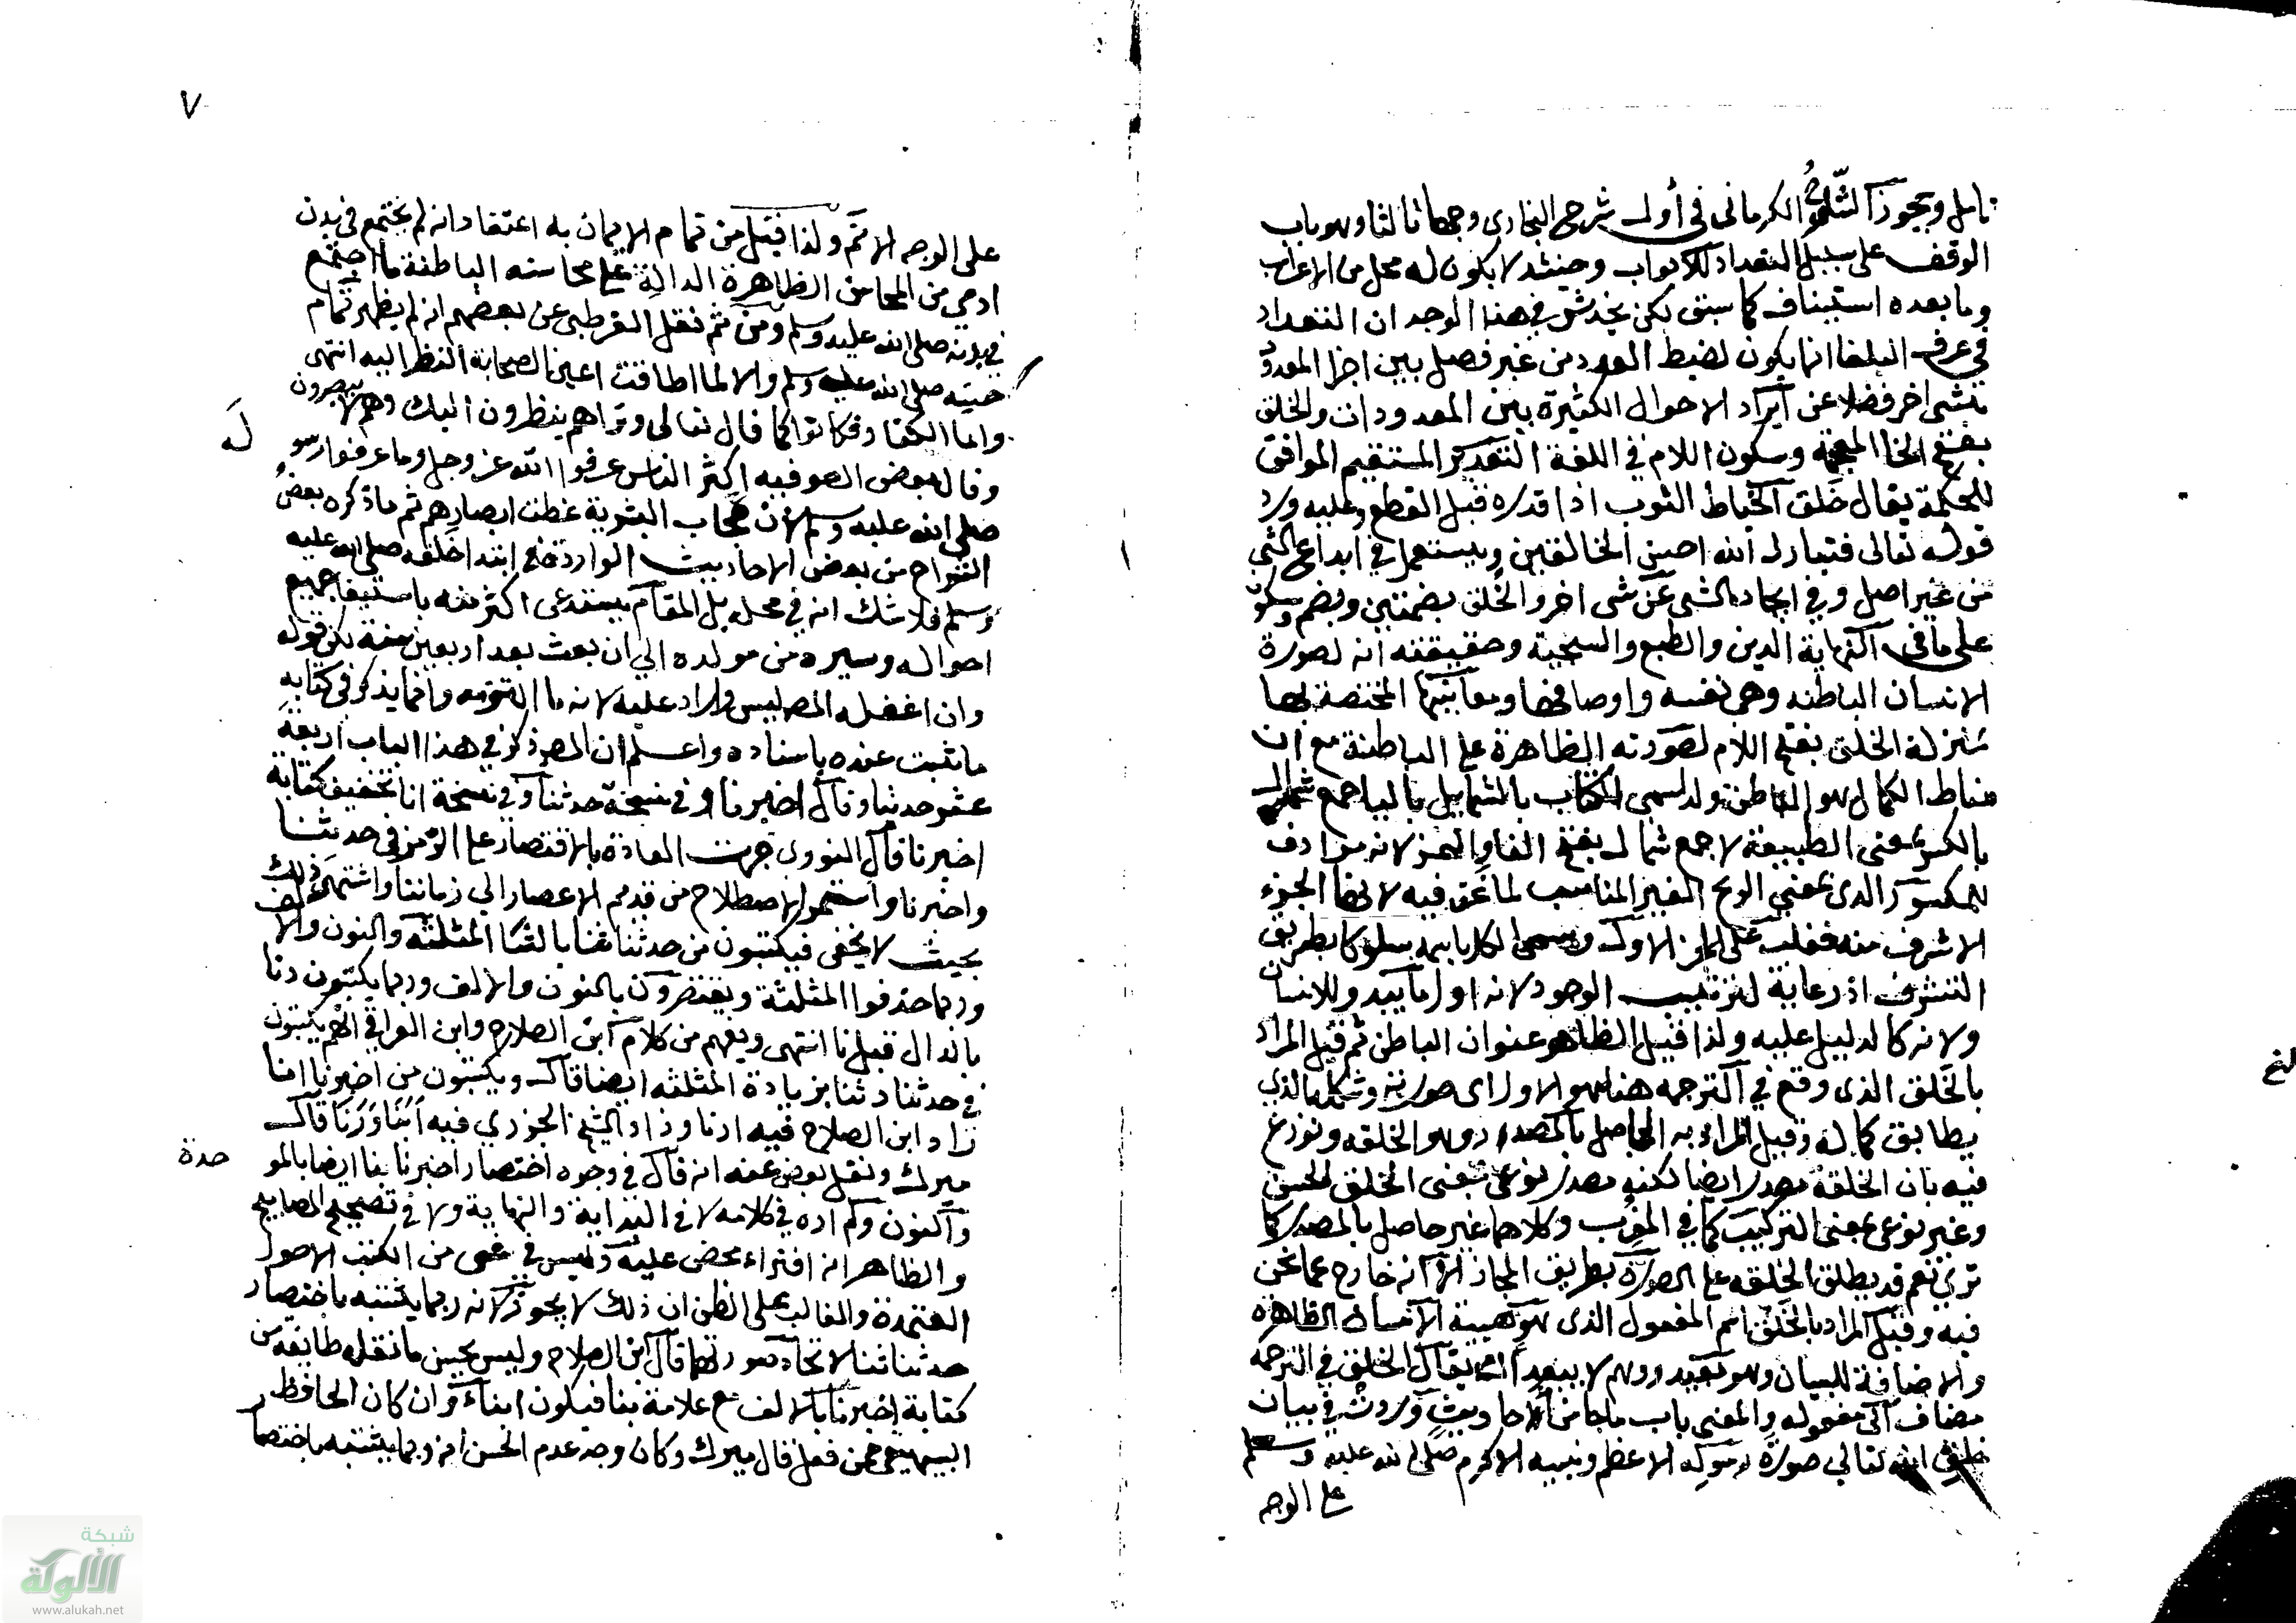 تامل ويجوز الكرماني في أول شرح البخاري وجها ثالثا وهو باب
الوقف على سبيل التعداد للابواب وحينئذ لا يكون له محل من الاعراب
وما بعده استيناف كما سبق لكن يخدش في هذا الوجه ان التعداد
في عرف البلغا انما يكون لضبط العدد من غير فصل بين اجزا المعدود
بشي اخر فضلا عن ايراد الاحوال الكثيرة بين المعدودات والخلق
بفتح الخا المعجمة وسكون اللام في اللغة التقدير المستقيم الموافق
للحكمة يقال خلق الخياط الثوب اذا قدره قبل القطع وعليه ورد
قوله تعالى فتبارك الله احسن الخالقين ويستعمل في ابداع الشي
من غير اصل وفي ايجاد الشي عن شي اخر والخلق بضمتين وبضم وسكون
على ما في النهاية الدين والطبع والسجية وحقيقته انه لصورة
الانسان الباطنه وهي نفسه واوصافها ومعانيها المختصة بها
بمنزلة الخلق بفتح اللام لصورته الظاهرة على الباطنة مع ان
مناط الكمال هو الباطن ولد لسمى الكتاب بالشمايل باليا جمع شمال
بالكسر بمعنى الطبيعة لا جمع شمال بفتح الفا والهمز لانه مرادف
للمكسور الذي بمعنى الريح الغير المناسب لما نحن فيه لا نها الجزء
الاشرف منه فغلب على الجز الاول وسمي الكل باسمه سلوكا بطريق
التشرف اذ رعاية لترتيب الوجود لانه اول ما يبدو للانسان
ولانه كالدليل عليه ولذا قيل الظاهر عنوان الباطن ثم قيل المراد
بالخلق الذي وقع في الترجمه هنا هو الاول اي صورته وشكله الذي
يطابق كماله وقيل المراد به الحاصل بالمصدر وهو الخلقه ونوزع
فيه بان الخلقة مصدر ايضا لكنه مصدر نوعي بمعنى الخلق الحسن
وغير نوعي بمعنى التركيب كما في المغرب وكلاهما غير حاصل بالمصدر كما
ترى نعم قد يطلق الخلقه على الصورة بطريق المجاز الا انه خارج عما نحن
فيه وقيل المراد بالخلق اسم المفعول الذي هو هيية الانسان الظاهرة
والاضافة للبيان وهو بعيد ووهم لا يبعد ان يقال الخلق في الترجمه
مضاف الى مفعوله والمعنى باب ما جا من احاديث وردت في بيان
خلق الله تعالى صورة رسوله الاعظم ونبيه الاكرم صلى الله عليه وسلم
على الوجه
٧
على الوجه الاتم ولذا قيل من تمام الايمان به اعتقاد انه لم يجتمع في بدن
ادمي من المحاسن الظاهرة الدالة على محاسنه الباطنة ما اجتمع
في بدنه صلى الله عليه وسلم ومن ثم نقل القرطبي عن بعضهم انه لم يظهر تمام
حسنه صلى الله عليه وسلم والا لما اطاقت اعين الصحابة النظر اليه انتهى
واما الكفار فكانوا كما قال تعالى وتراهم ينظرون اليك وهم لا يبصرون
وقال بعض الصوفيه اكثر الناس عرفوا الله عز وجل وما عرفوا رسو
له
صلى الله عليه وسلم لان حجاب البشرية غطت ابصارهم ثم ما ذكره بعض
الشراح من بعض الاحاديث الواردة في ابتدا خلقه صلى الله عليه
وسلم فلا شك انه في محل بل المقام يستدعي اكثر منه باستيفا جميع
احواله وسيره من مولده الى ان بعث بعد اربعين سنة لكن قوله
وان اغفله المصـ ليس واراد عليه لانه ما التزمه وانما يذكر في كتابه
ما ثبت عنده باسناده واعلم ان المصـ ذكر في هذا الباب اربعة
عشر حدثنا وقال اخبرنا وفي نسخة حدثنا وفي نسخة انا تخفيف كتابة
اخبرنا قال النووي جرت العادة بالاقتصار على الرمز في حدثنا
واخبرنا واستمر الاصطلاح من قديم الاعصار الى زماننا واشتهر ذلك
بحيث لا يخفى فيكتبون من حدثنا ثنا بالثا المثلثه والنون والالف
وربما حذفوا المثلثة ويقتصرون بالنون والالف وربما يكتبون دنا
بالدال قبل نا انتهى ويفهم من كلام ابن الصلاح وابن العراقي انهم يكتبون
في حدثنا دثنا بزيادة المثلثه ايضا قال ويكتبون من اخبرنا انا
زاد ابن الصلاح فيه ارنا وزاد الشيخ الجزري فيه ابنا ورنا قال
ميرك ونقل بعض عنه انه قال في وجوه اختصار اخبرنا بنا ايضا بالمو
حدة
والنون ولم اره في كلامه لا في البداية والنهاية ولا في تصحيح المصابيح
والظاهر انه افتراء محض عليه وليس في شي من الكتب الاصول
المعتمدة والغالب على الظن ان ذلك لا يجوز لانه ربما يشتبه باختصار
حدثنا ثنا لاتحاد صورتهما قال ابن الصلاح وليس بحسن ما نقله طايفة من
كتابة اخبرنا بالالف مع علامة بنا فيكون ابناء وان كان الحافظ
البيهقي ممن فعل قال ميرك وكان وجه عدم الحسن انه ربما يشتبه باختصا
شبكة
الألوكة
www.alukah.net